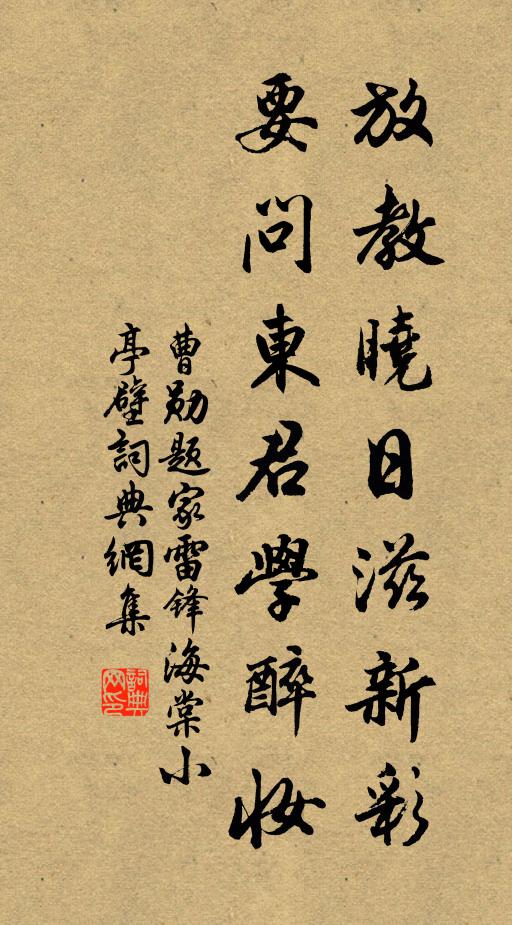 放教曉日滋新彩
要問東君學醉妝
曹勛題家雷鋒海棠小
亭壁詞典網集
詞典網印